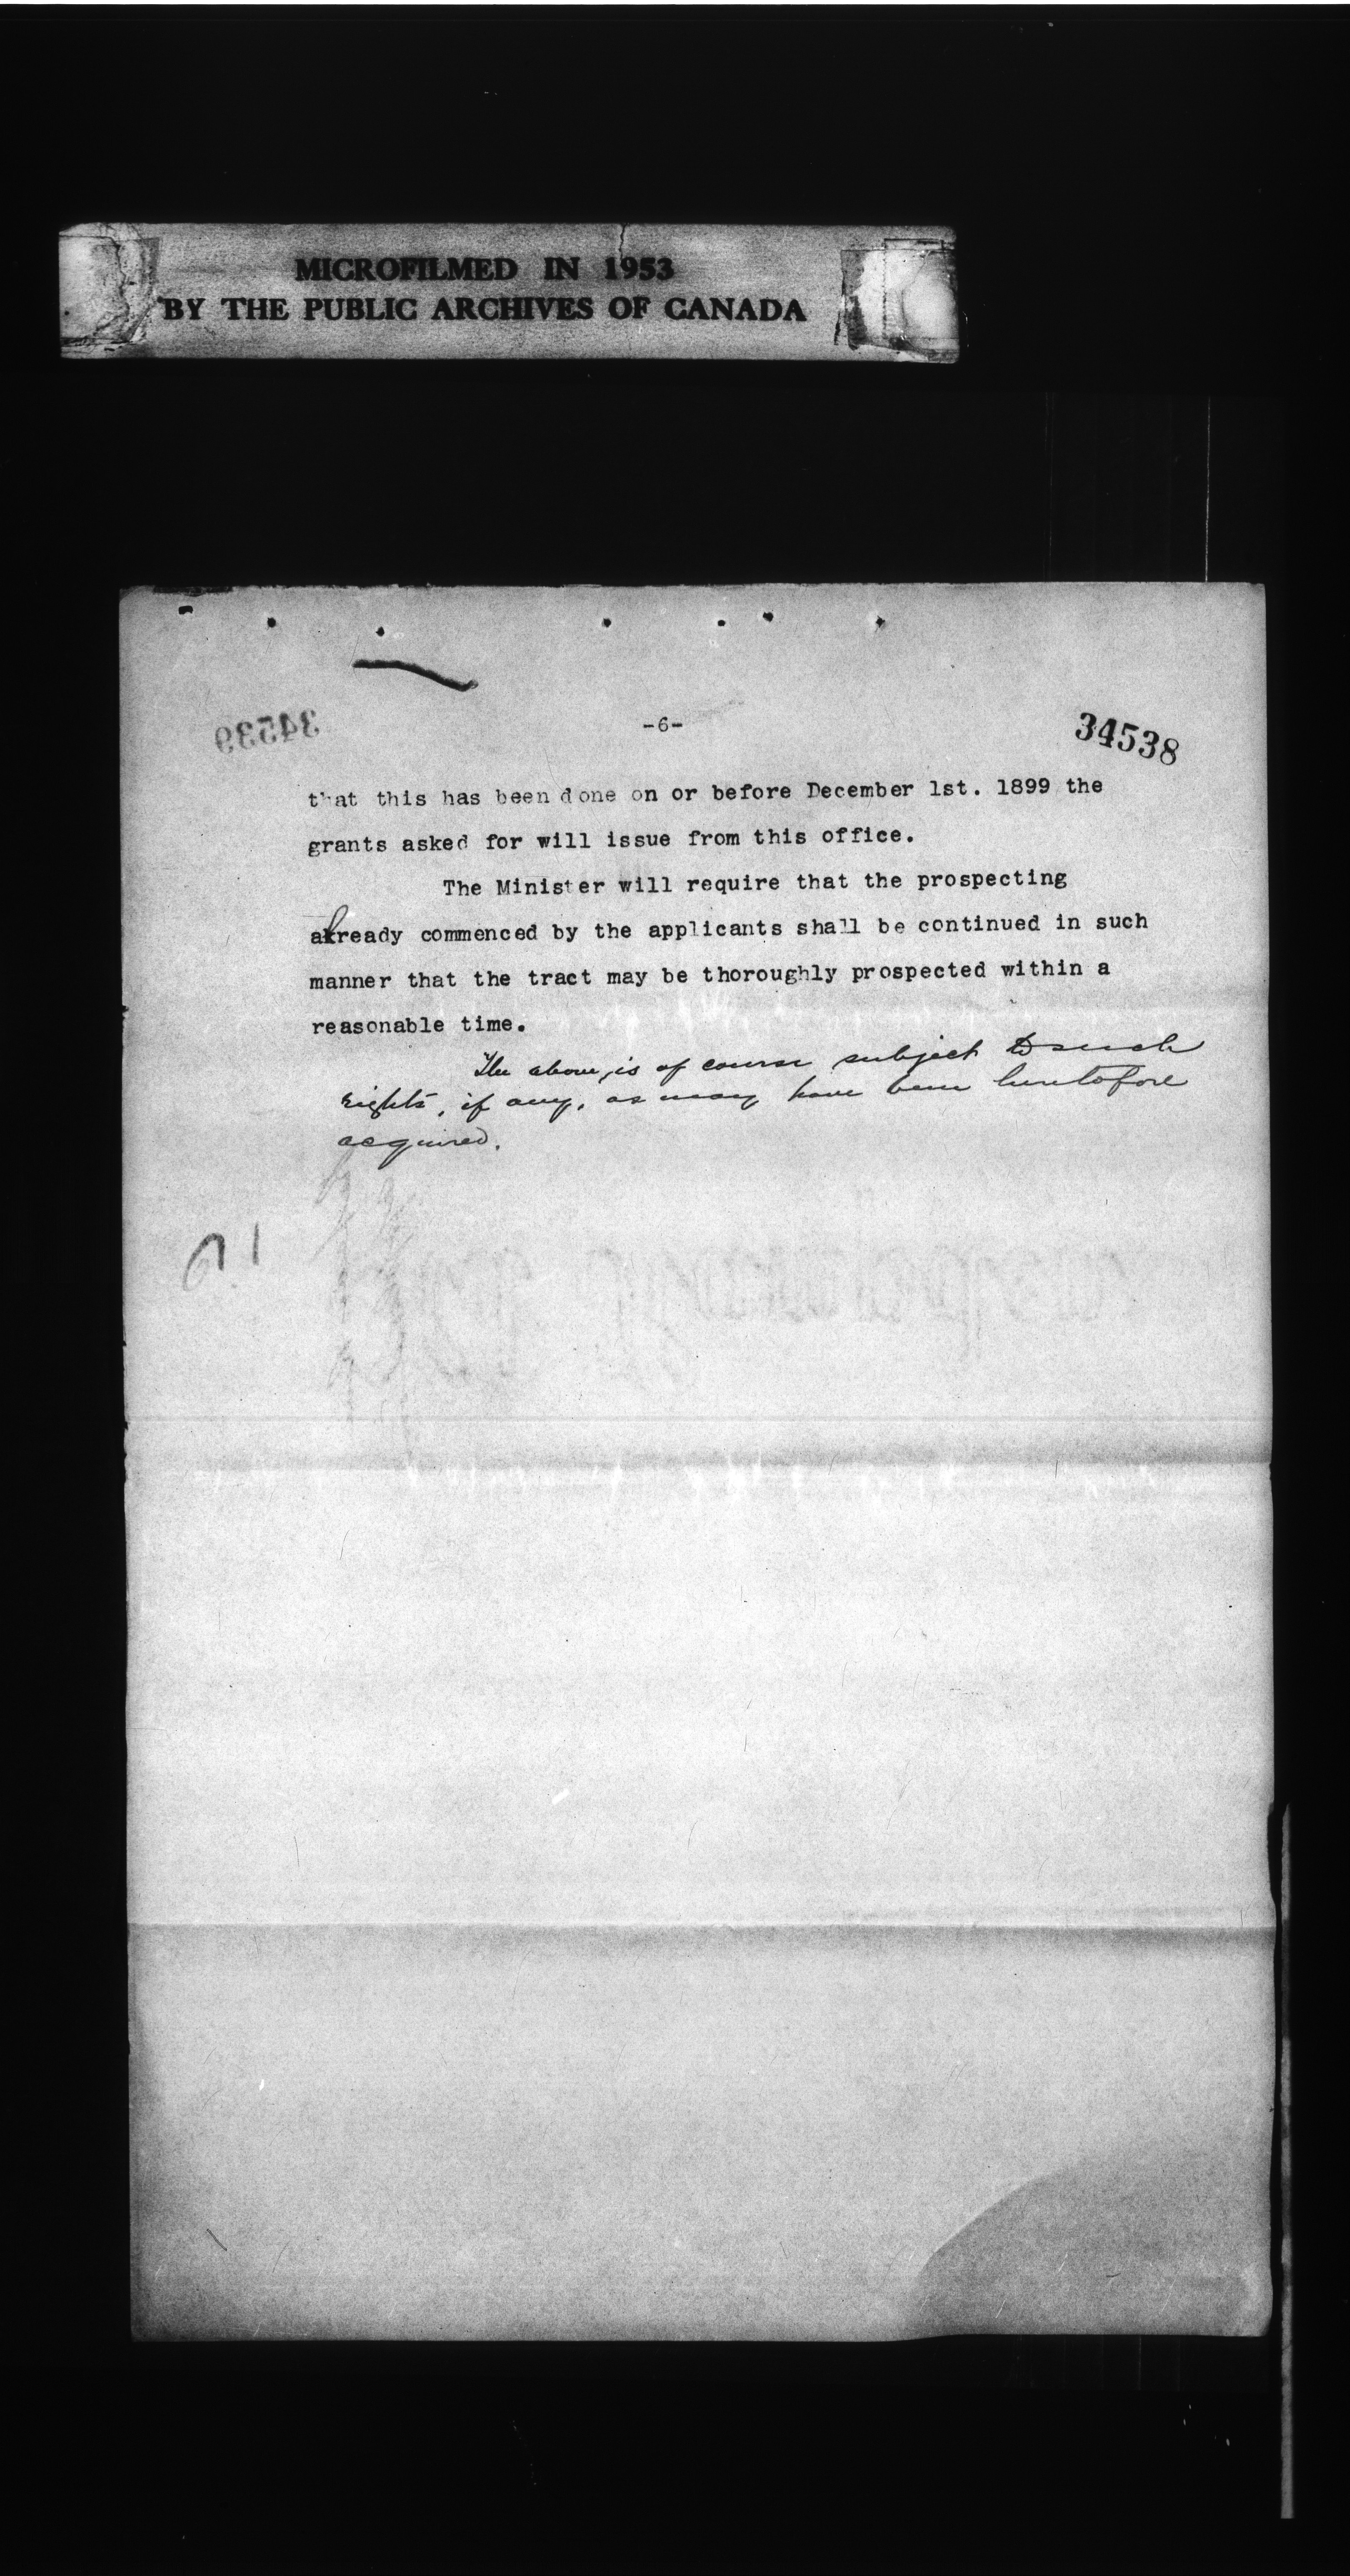 MICROFILMED IN 1953
BY THE PUBLIC ARCHIVES OF CANADA
34539
-6-
34538
that this has been done on or before December 1st. 1899 the
grants asked for will issue from this office.
The Minister will require that the prospecting
already commenced by the applicants shall be continued in such
manner that the tract may be thoroughly prospected within a
reasonable time.
The above, is of course subject to such
rights, if any, as may have been heretofore
acquired.